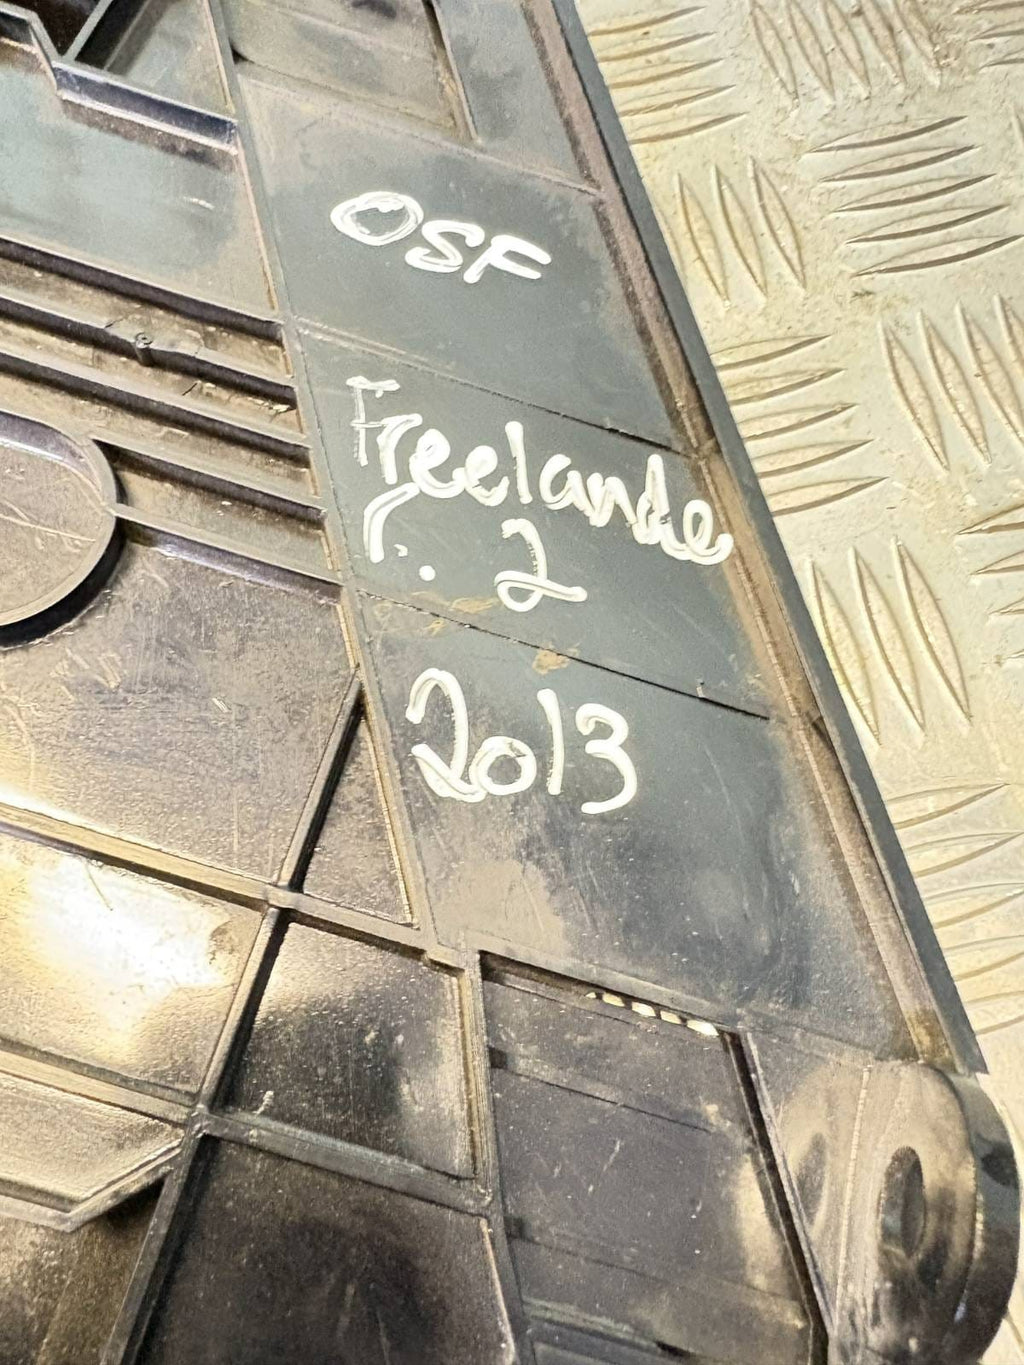 OSF
Freelande
r. 2
2013